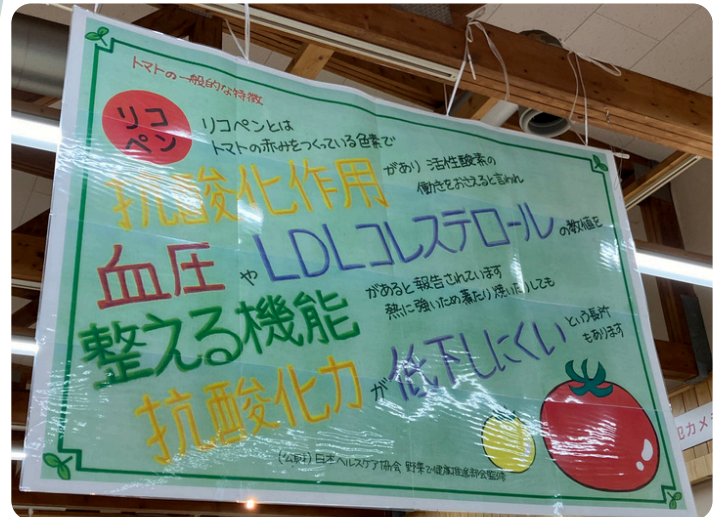 トマトの一般的な特徴
リコ
ペン
リコペンとは
トマトの赤みをつくっている色素で
抗酸化作用があり 活性酸素の
働きをおさえると言われ
血圧やLDLコレステロールの数値を
整える機能があると報告されています
熱に強いため煮たり焼いたりしても
抗酸化力が低下しにくいという長所
もあります
(公財)日本ヘルスケア協会 野菜で健康推進部会監修
犯カメラ